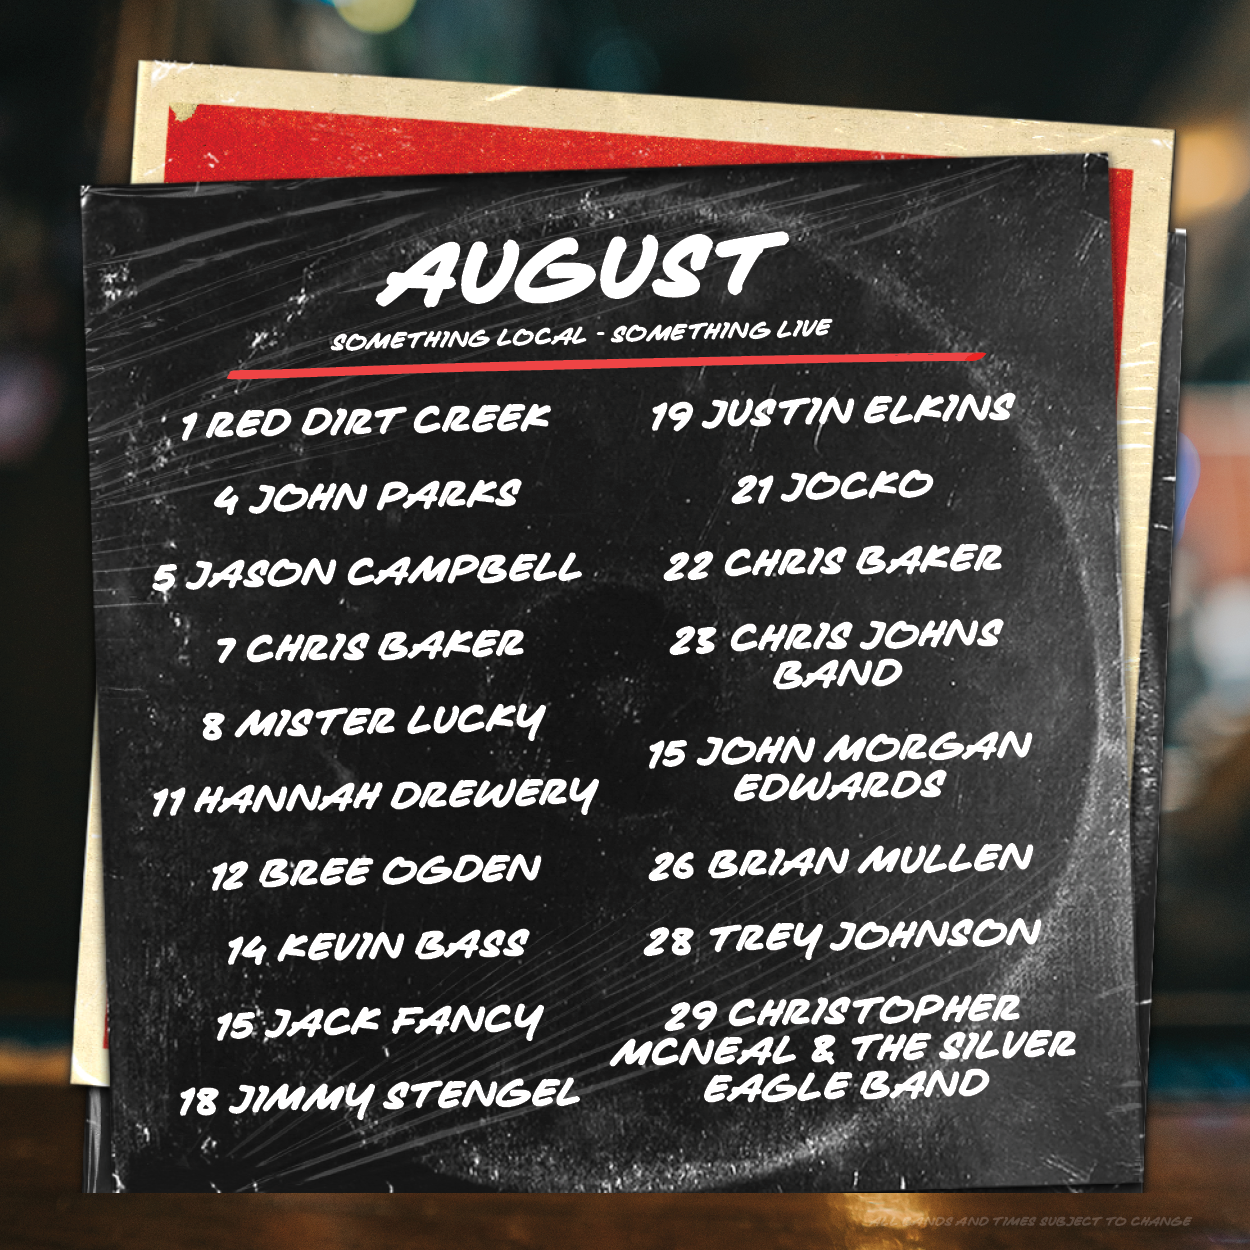 AUGUST
SOMETHING LOCAL - SOMETHING LIVE
1 RED DIRT CREEK
4 JOHN PARKS
5 JASON CAMPBELL
7 CHRIS BAKER
8 MISTER LUCKY
11 HANNAH DREWERY
12 BREE OGDEN
14 KEVIN BASS
15 JACK FANCY
18 JIMMY STENGEL
19 JUSTIN ELKINS
21 JOCKO
22 CHRIS BAKER
23 CHRIS JOHNS
BAND
15 JOHN MORGAN
EDWARDS
26 BRIAN MULLEN
28 TREY JOHNSON
29 CHRISTOPHER
MCNEAL & THE SILVER
EAGLE BAND
ALL BANDS AND TIMES SUBJECT TO CHANGE